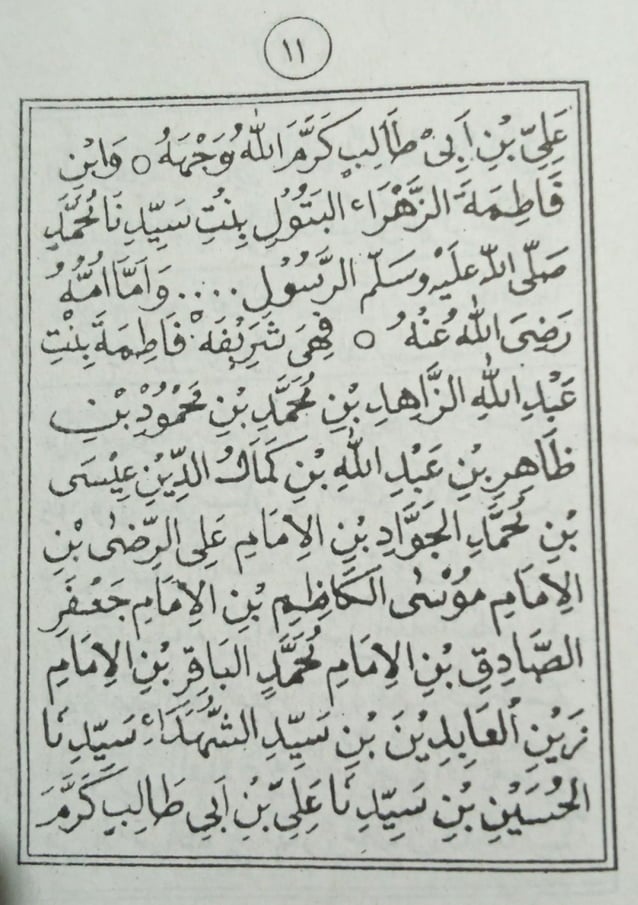 ١١
عَلِيِّ بْنِ اَبِىْ طَالِبٍ كَرَّمَ اللهُ وَجْهَهُ ○ وَابْنِ
فَاطِمَةَ الزَّهْرَاءِ البَتُوْلِ بِنْتِ سَيِّدِنَا مُحَمَّدٍ
صَلَّى اللهُ عَلَيْهِ وَسَلَّمَ الرَّسُوْلِ .... وَاَمَّا اُمُّهُ
رَضِىَ اللهُ عَنْهُ ○ فَهِىَ شَرِيْفَةْ فَاطِمَةَ بِنْتِ
عَبْدِ اللهِ الزَّاهِدِ بْنِ مُحَمَّدِ بْنِ مَحْمُوْدِ بْنِ
ظَاهِرِ بْنِ عَبْدِ اللهِ بْنِ كَمَالُ الدِّيْنِ عِيْسَى
بْنِ مُحَمَّدِ الجَوَّادِ بْنِ الاِمَامِ عَلِى الرِّضٰى بْنِ
الاِمَامِ مُوْسٰى الكَاظِمِ بْنِ الاِمَامِ جَعْفَرِ
الصَّادِقِ بْنِ الاِمَامِ مُحَمَّدٍ البَاقِرِ بْنِ الاِمَامِ
زَيْنِ العَابِدِيْنَ بْنِ سَيِّدِ الشُّهَدَاءِ سَيِّدِنَا
الحُسَيْنِ بْنِ سَيِّدِنَا عَلِيِّ بْنِ اَبِي طَالِبٍ كَرَّمَ